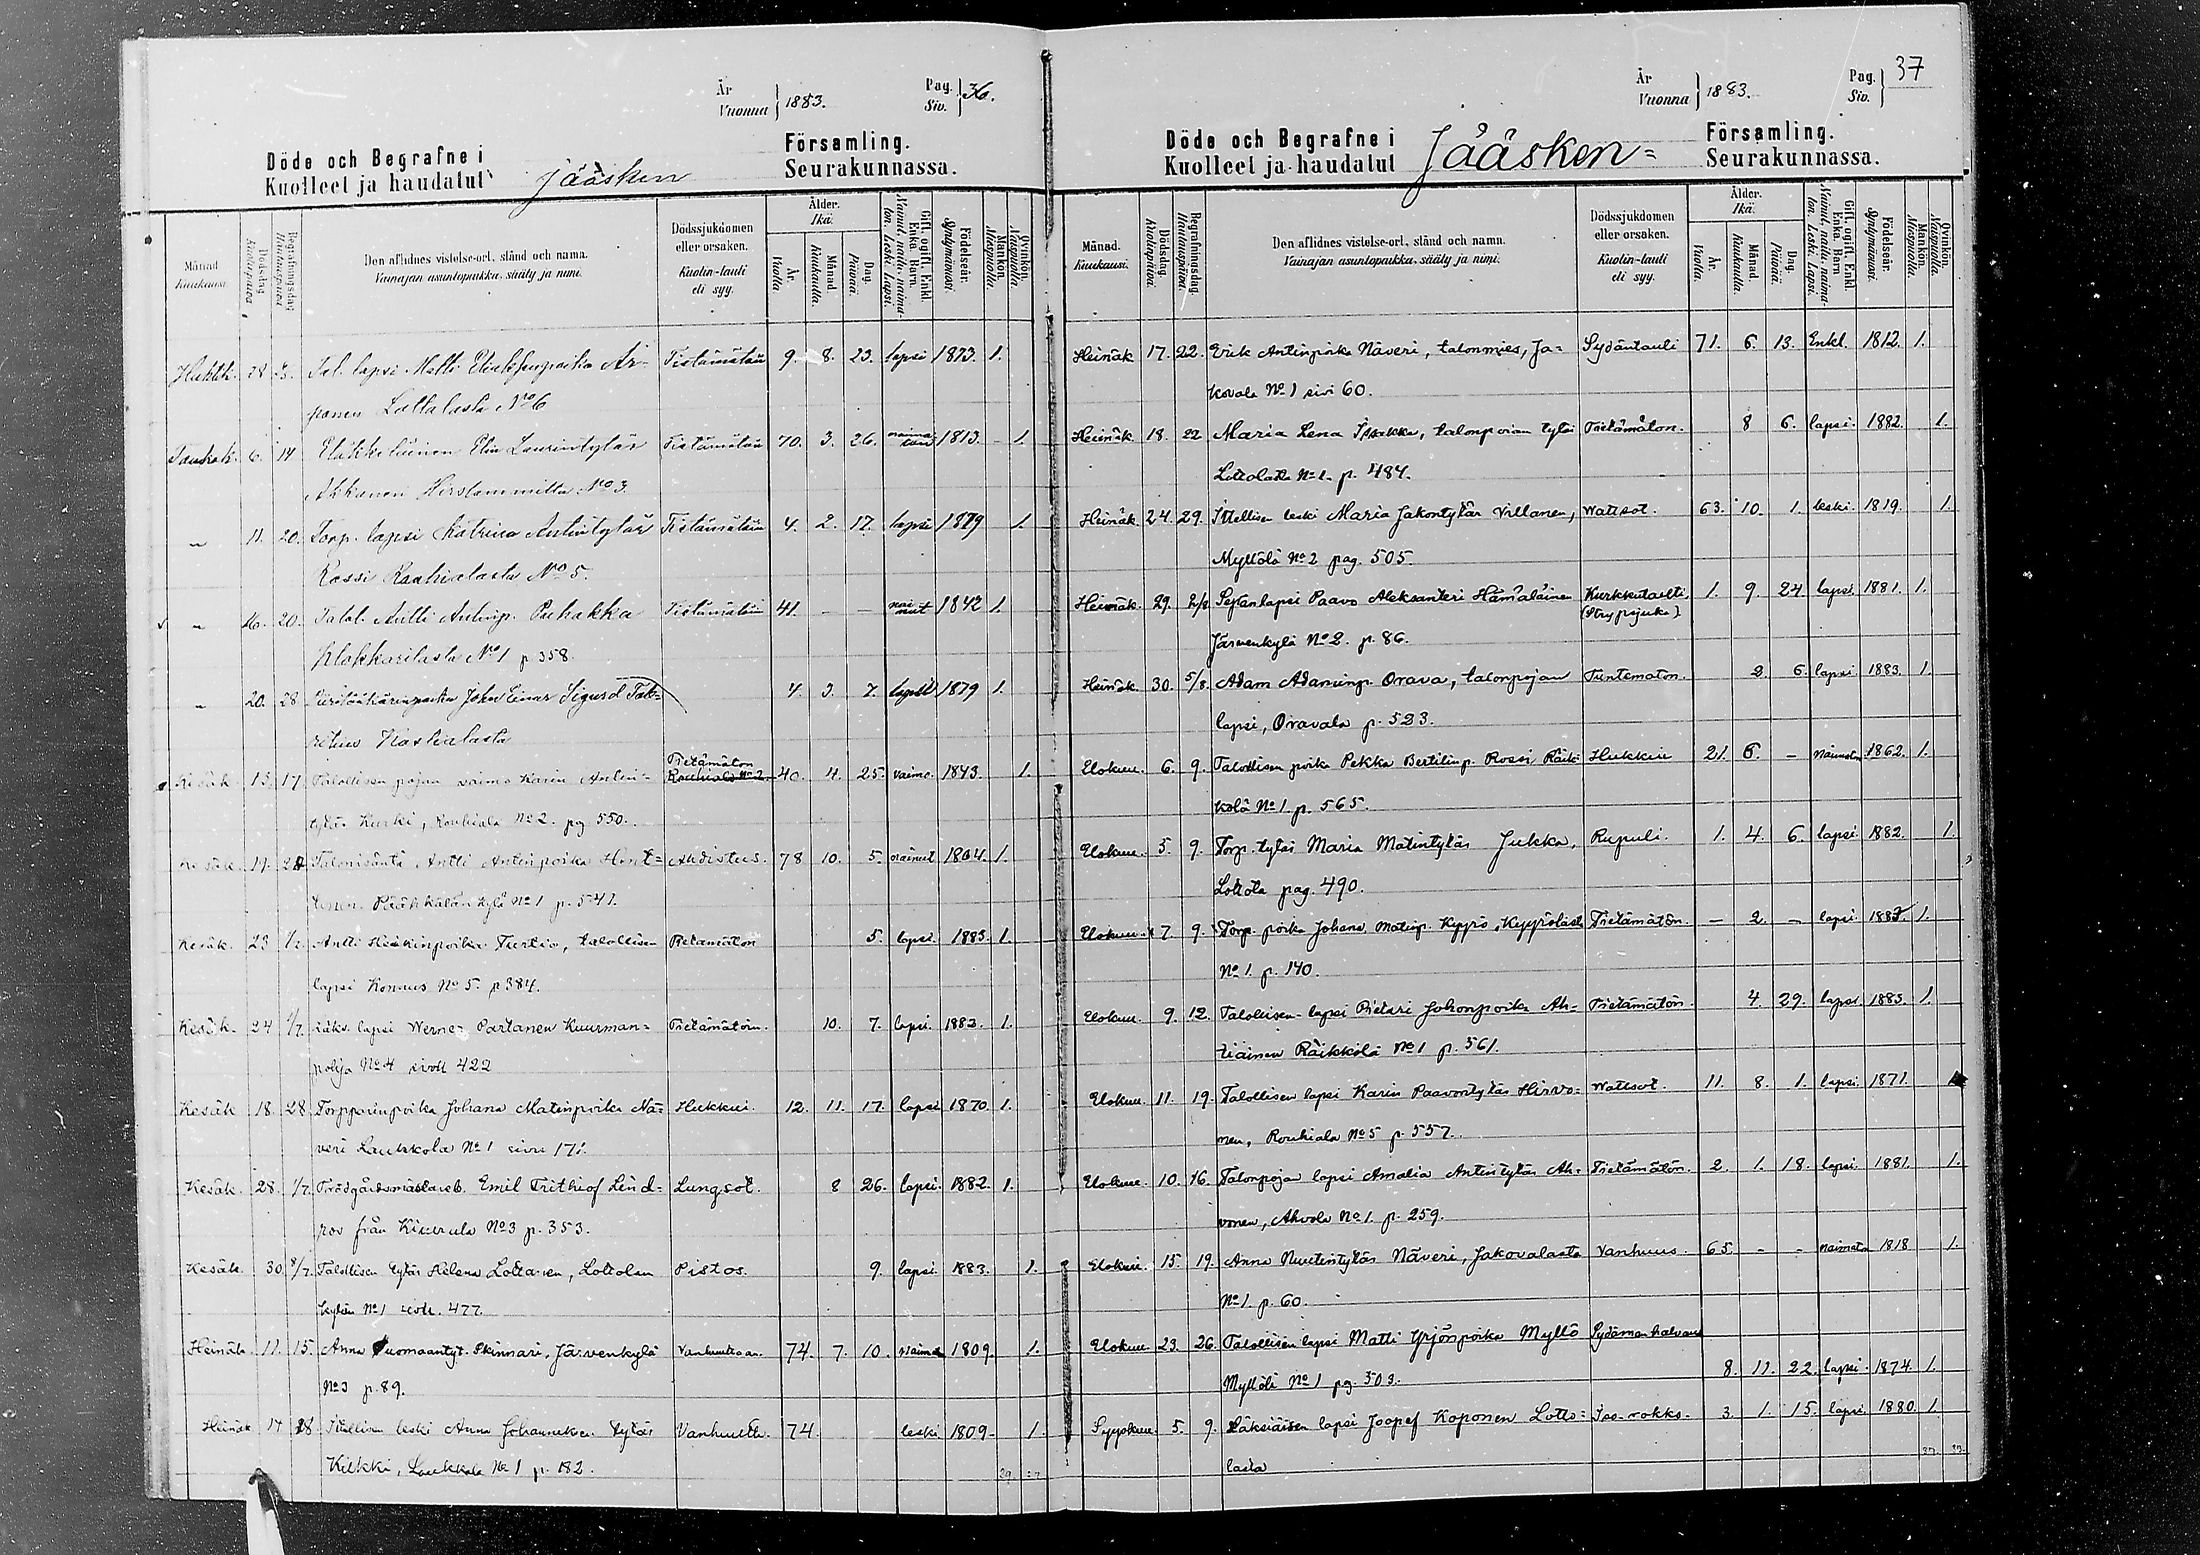 År
Vuonna } 1883.
Pag.
Siv. } 36.
Döde och Begrafne i
Kuolleet ja haudatut
Jääsken
Församling.
Seurakunnassa.
Månad
Kuukausi.
Dödsdag
Kuolinpäivä
Begrafningsdag
Hautauspäivä
Den aflidnes vistelse-ort, stånd och namn.
Vainajan asuntopaikka, sääty ja nimi.
Dödssjukdomen
eller orsaken.
Kuolin-tauti
eli syy.
Ålder.
Ikä.
År.
Vuotta
Månad.
Kuukautta.
Dag.
Päivää.
Gift, ogift, Enkl. Enka, Barn.
Nainut, naitu, naimaton, Leski, Lapsi.
Födelseår.
Syntymävuosi.
Mankön.
Miespuolia.
Qvinkön.
Naispuolia.
Huhtik. 28 3. Tal. lapsi Matti Eliaksenpoika Är- Tietämätöin 9. 8. 23. lapsi 1873. 1.
ponen Lottolasta No 6
Toukok. 6. 14 Eläkkeläinen Elin Laurintytär Tietämätöin 70. 3. 26. naimatoin 1813. 1.
Akkanen Hirslammilta No 3
" 11. 20. Torp. lapsi Katrina Antintytär Tietämätöin 4. 2. 17. lapsi 1879 1.
Rossi Rouhialasta No 5.
" 16. 20. Talol. Antti Antinp. Puhakka Tietämätöin 41. — — nainut 1842 1.
Klokkarilasta No 1 p 358.
" 20. 28 Johan Einar Sigurd 4. 3. 7. lapsi 1879 1.
Kaskalasta
Kesäk 13. 17 Talollisen pojan vaimo Karin Antin- Tietämätön 40. 4. 25. vaimo 1843. 1.
Rouhiala No 2
tytär Kurki, Rouhiala No 2. pg 550.
Kesäk. 19. 24 Talonisäntä Antti Antinpoika Hint- Ahdistus. 78 10. 5. nainut 1804. 1.
tunen Pääkkälänkylä No 1 p. 541.
Kesäk. 23 1/7. Antti Heikinpoika Turtia, talollisen Tietämätön 5. lapsi. 1883. 1.
lapsi Konnus No 5. p 384.
Kesäk. 24 1/7. lapsi Werner Partanen Kuurman- Tietämätön. 10. 7. lapsi. 1882. 1.
pohja No 4 sivll 422
Kesäk 18. 28 Torpparinpoika Johana Matinpoika Nä- Hukkui. 12. 11. 17. lapsi 1870 1.
veri Laukkola No 1 sivu 171.
Kesäk. 28. 1/7. Trädgårdsmästareb. Emil Frithiof Lind- Lungsot. 8 26. lapsi. 1882. 1.
roo från Kiurula No 3 p. 353.
Kesäk. 30. 8/7. Talollisen tytär Helena Lottanen, Lottolan Pistos. 9. lapsi. 1883. 1.
kylän No 1 sivu. 477.
Heinäk. 11. 15. Anna Tuomaantyt. Skinnari, Järvenkylä Vanhuuteen. 74. 7. 10. naima 1809. 1.
No 3 p. 89.
Heinäk 14 18. Itsellisen leski Anna Johanneksen tytär Vanhuutta. 74. leski 1809. 1
Kilkki, Laukkala No 1 p. 182.
År
Vuonna } 1883.
Pag.
Siv. } 37
Döde och Begrafne i
Kuolleet ja haudatut
Jääsken-
Församling.
Seurakunnassa.
Månad.
Kuukausi.
Dödsdag.
Kuolinpäivä.
Begrafningsdag.
Hautauspäivä.
Den aflidnes vistelse-ort, stånd och namn.
Vainajan asuntopaikka, sääty ja nimi.
Dödssjukdomen
eller orsaken.
Kuolin-tauti
eli syy.
Ålder.
Ikä.
År.
Vuotta.
Månad
Kuukautta.
Dag.
Päivää.
Gift, ogift, Enkl. Enka, Barn
Nainut, naitu, naimaton, Leski, Lapsi.
Födelseår.
Syntymävuosi.
Mankön.
Miespuolia.
Qvinkön.
Naispuolia.
Heinäk 17. 22. Erik Antinpoika Näveri, talonmies, Ja- Sydäntauti 71. 6. 13. Enkl. 1812. 1.
kovala No 1 sivu 60.
Heinäk. 18. 22 Maria Lena Ihakka, talonpojan tytär Tietämätön. 8 6. lapsi. 1882. 1.
Lottolasta No 1. p. 484.
Heinäk. 24. 29. Itsellisen leski Maria Jakontytär Villanen, Wattsot. 63. 10. 1. leski. 1819. 1.
Myttölä No 2 pag. 505.
Heinäk. 29. 2/8 Sepän lapsi Paavo Aleksanteri Hämäläinen Kurkkutauti 1. 9. 24 lapsi. 1881. 1.
(Strypsjuka)
Järvenkylä No 2. p. 86.
Heinäk. 30. 5/8. Adam Adaminp. Orava, talonpojan Tuntematon. 2. 6. lapsi 1883. 1.
lapsi, Oravala p. 523.
Elokuu. 6. 9. Talollisen poika Pekka Bertilinp. Rossi Räik- Hukkui 21. 6. - Naimaton 1862. 1.
kölä No 1. p. 565.
Elokuu. 5. 9. Torp. tytär Maria Matintytär Jukka, Rupuli. 1. 4. 6. lapsi. 1882. 1.
Lottola pag. 490.
Elokuu. 7 9. Torp. poika Johana Matinp. Kyyrö, Kyyrölästä Tietämätön. — 2. — lapsi. 1883. 1.
No 1. p. 140.
Elokuu. 9. 12. Talollisen lapsi Pietari Juhonpoika Ah- Tietämätön. 4. 29. lapsi. 1883. 1.
tiainen Räikkölä No 1 p. 561.
Elokuu. 11 19. Talollisen lapsi Karin Paavontytär Hirvo- Wattsot. 11. 8. 1. lapsi. 1871. 1
nen, Rouhiala No 5 p. 557.
Elokuu. 10. 16. Talonpojan lapsi Amalia Antintytär Ah- Tietämätön. 2. 1. 18. lapsi. 1881. 1.
vonen, Ahvola No 1. p. 259.
Elokuu. 15. 19. Anna Nuutintytär Näveri, Jakovalasta Vanhuus. 65. - - Naimaton 1818 1.
No 1. p. 60.
Elokuu. 23. 26. Talollisen lapsi Matti Yrjönpoika Myttö Sydämenhalvaus
Myttölä No 1 pg. 503. 8. 11. 22. lapsi. 1874. 1.
Syyskuu. 5. 9. Läksiäisen lapsi Joopef Koponen Lotto- Iso-rokko. 3. 1. 15. lapsi. 1880. 1.
lasta